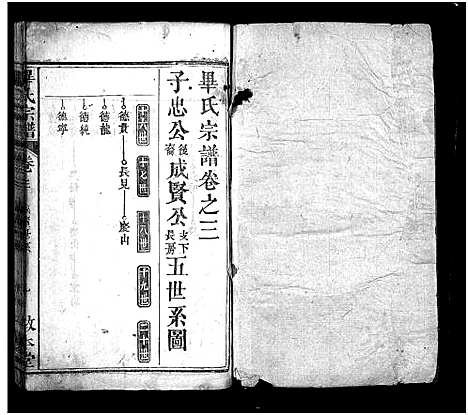 畢氏宗譜卷之三
子忠公後裔成賢公支下長房五世系圖
十六世 十七世 十八世 十九世 二十世
德貴 長見 慶山
德龍
德純
德寧
畢氏宗譜 卷三
敦本堂